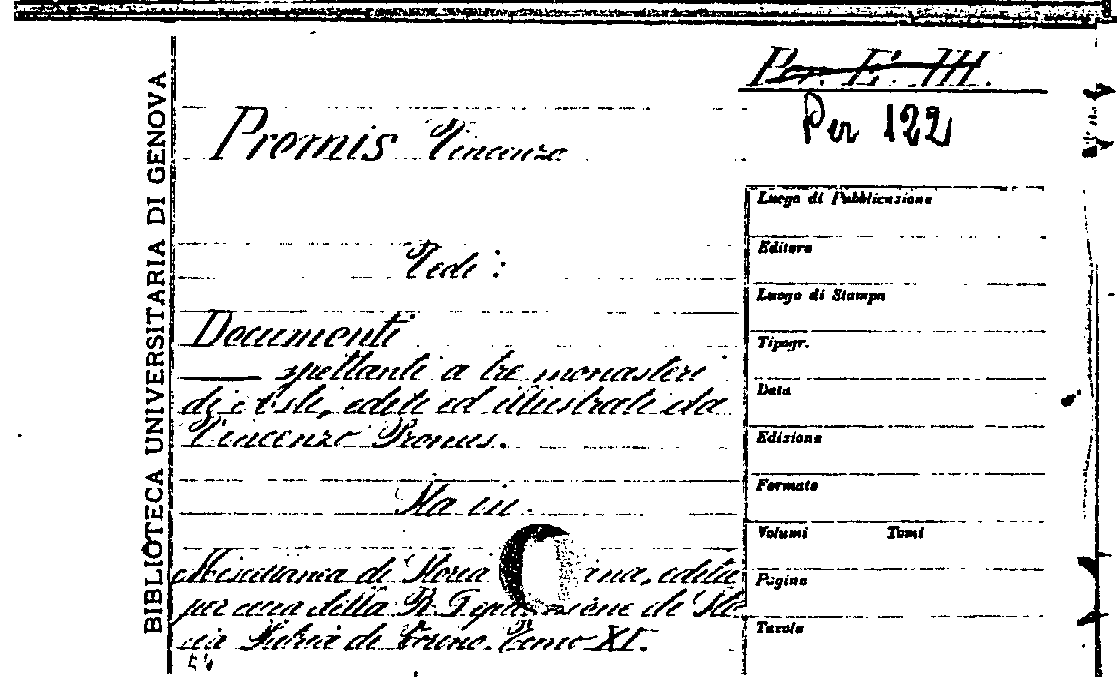 Per. E. III.
Per 122
Promis Vincenzo
Vedi:
Documenti
spettanti a tre monasteri
d'Asti, editi ed illustrati da
Vincenzo Promis.
Sta in
Miscellanea di Storia edita
per cura della R. Deputazione di Sto
ria Patria di Torino. Tomo XI.
BIBLIOTECA UNIVERSITARIA DI GENOVA
Luogo di Pubblicazione
Editore
Luogo di Stampa
Tipogr.
Data
Edizione
Formato
Volumi Tomi
Pagine
Tavole